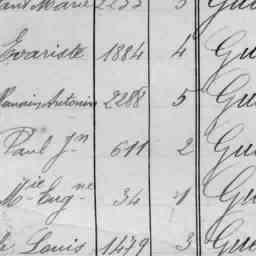 Marie 2233 3 Gu
Evariste 1884 4 Gu
Antonin 2288 5 Gu
Paul Jn 611 2 Gu
Mie Eugne 34 1 Gu
Louis 1479 3 Gu